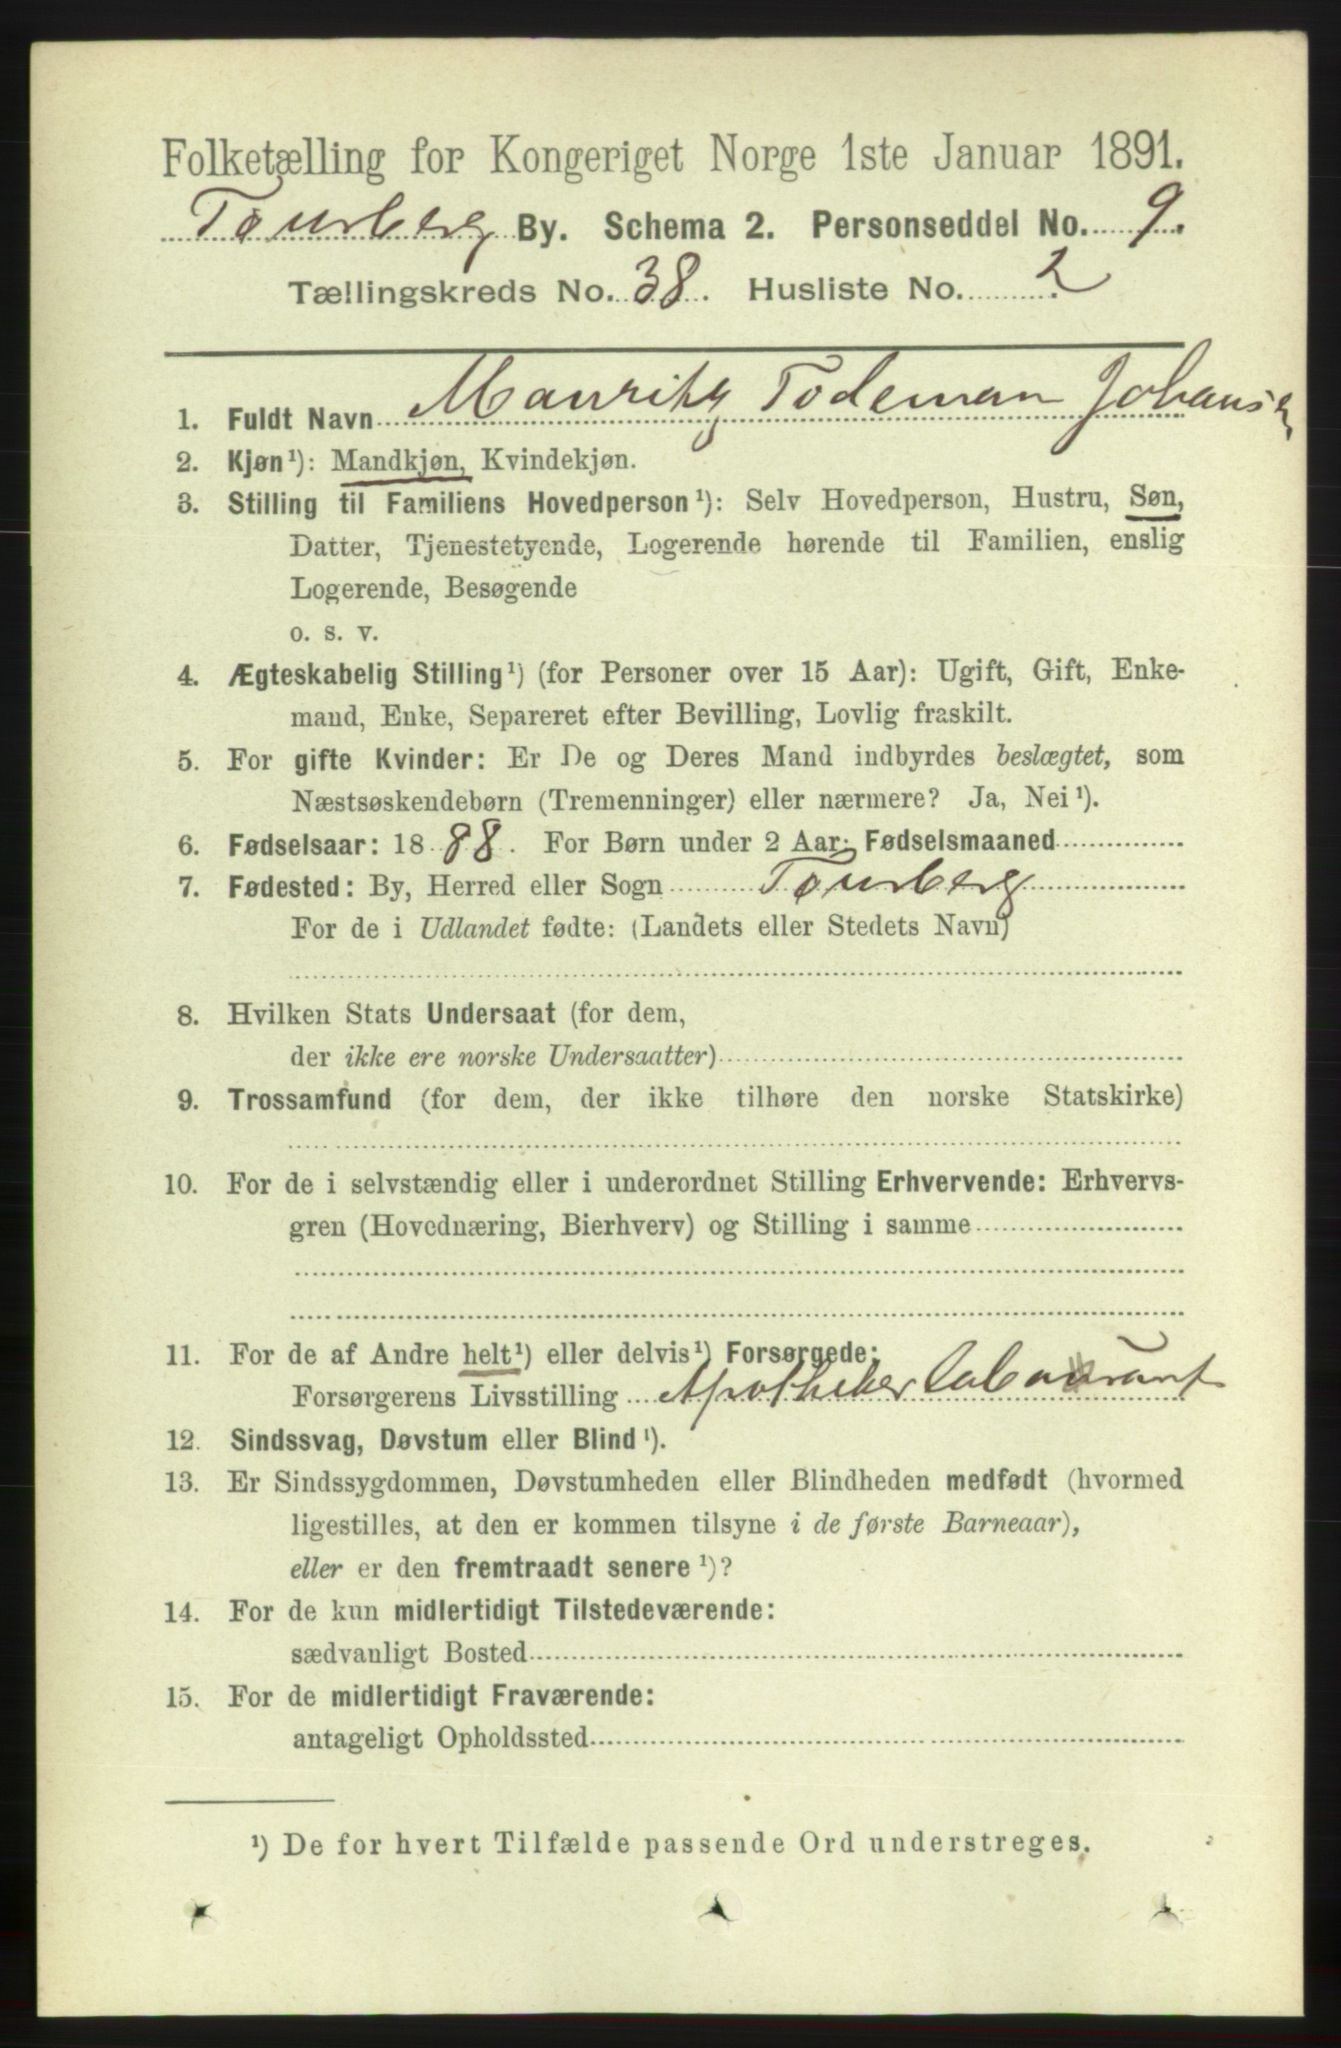 Folketælling for Kongeriget Norge 1ste Januar 1891.
Tønsberg By. Schema 2. Personseddel No. 9.
Tællingskreds No. 38. Husliste No. 2
1. Fuldt Navn Mauritz Todeman Johansen
2. Kjøn¹): Mandkjøn, Kvindekjøn.
3. Stilling til Familiens Hovedperson¹): Selv Hovedperson, Hustru, Søn,
Datter, Tjenestetyende, Logerende hørende til Familien, enslig
Logerende, Besøgende
o. s. v.
4. Ægteskabelig Stilling¹) (for Personer over 15 Aar): Ugift, Gift, Enke-
mand, Enke, Separeret efter Bevilling, Lovlig fraskilt.
5. For gifte Kvinder: Er De og Deres Mand indbyrdes beslægtet, som
Næstsøskendebørn (Tremenninger) eller nærmere? Ja, Nei¹).
6. Fødselsaar: 1888. For Børn under 2 Aar: Fødselsmaaned
7. Fødested: By, Herred eller Sogn Tønsberg
For de i Udlandet fødte: (Landets eller Stedets Navn)
8. Hvilken Stats Undersaat (for dem,
der ikke ere norske Undersaatter)
9. Trossamfund (for dem, der ikke tilhøre den norske Statskirke)
10. For de i selvstændig eller i underordnet Stilling Erhvervende: Erhvervs-
gren (Hovednæring, Bierhverv) og Stilling i samme
11. For de af Andre helt¹) eller delvis¹) Forsørgede:
Forsørgerens Livsstilling Apotheker Laborant
12. Sindssvag, Døvstum eller Blind¹).
13. Er Sindssygdommen, Døvstumheden eller Blindheden medfødt (hvormed
ligestilles, at den er kommen tilsyne i de første Barneaar),
eller er den fremtraadt senere¹)?
14. For de kun midlertidigt Tilstedeværende:
sædvanligt Bosted
15. For de midlertidigt Fraværende:
antageligt Opholdssted
¹) De for hvert Tilfælde passende Ord understreges.